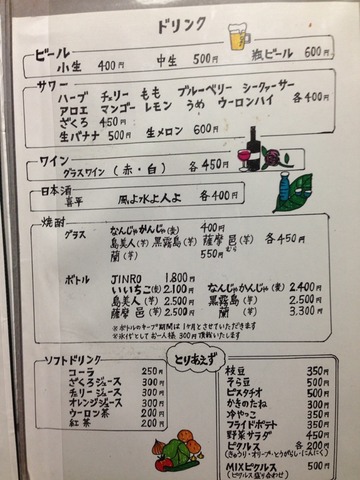 ドリンク
ビール
小生 400円 中生 500円 瓶ビール 600円
サワー
ハーブ チェリー もも ブルーベリー シークァーサー
アロエ マンゴー レモン うめ ウーロンハイ 各400円
ざくろ 450円
生バナナ 500円 生メロン 600円
ワイン
グラスワイン (赤・白) 各450円
日本酒
喜平 風よ水よ人よ 各400円
焼酎
グラス なんじゃかんじゃ(麦) 400円
島美人(芋) 黒霧島(芋) 薩摩 邑(芋) 各450円
蘭(芋) 550円
ボトル JINRO 1,800円
いいちこ(麦) 2,100円 なんじゃかんじゃ(麦) 2,400円
島美人(芋) 2,500円 黒霧島(芋) 2,500円
薩摩 邑(芋) 2,500円 蘭(芋) 3,300円
※ボトルのキープ期間は1ヶ月とさせていただきます
※氷代としてお一人様300円頂戴いたします
ソフトドリンク
コーラ 250円
ざくろジュース 300円
チェリージュース 300円
オレンジジュース 300円
ウーロン茶 200円
紅茶 200円
とりあえず
枝豆 350円
そら豆 500円
ピスタチオ 500円
かきのたね 300円
冷やっこ 350円
フライドポテト 350円
野菜サラダ 450円
ピクルス 各200円
(きゅうり・オリーブ・とうがらし・にんにく)
MIXピクルス 500円
(ピクルス盛り合わせ)